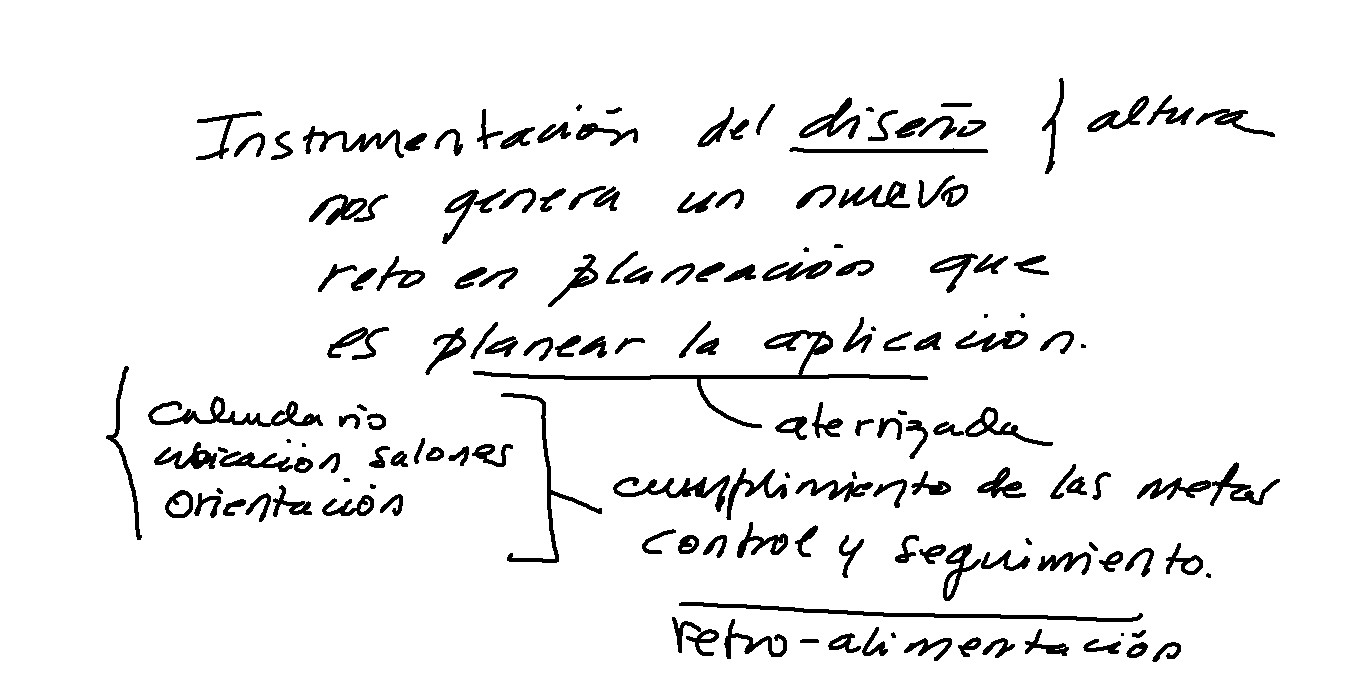 Instrumentación del diseño } altura
nos genera un nuevo
reto en planeación que
es planear la aplicación.
aterrizada
{ Calendario
ubicación salones
Orientación ]
cumplimiento de las metas
control y seguimiento.
retro-alimentación